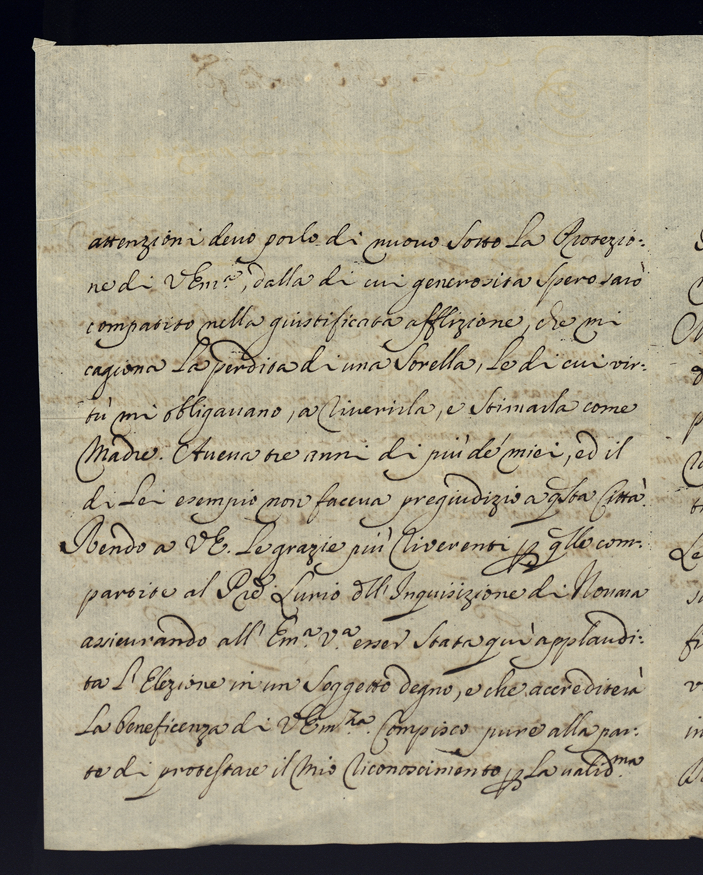 attenzioni devo porlo di nuovo sotto la Protezio:
ne di VEm.ª, dalla di cui generosità spero sarò
compatito nella giustificata afflizione, che mi
cagiona la perdita di una Sorella, le di cui vir:
tù mi obligavano, a riverirla, e stimarla come
Madre. Aveva tre anni di più de' miei, ed il
di Lei esempio non faceva pregiudizio a qsta Città.
Rendo a VE. le grazie più riverenti p qlle com:
partite al Pred. Curio dll'Inquisizione di Novara
assicurando all'Em.ª V.ª esser stata qui applaudi:
ta l'Elezione in un Soggetto degno, e che accrediterà
la beneficenza di VEm.za. Compisco pure alla par:
te di protestare il mio riconoscimento p la valid.ma